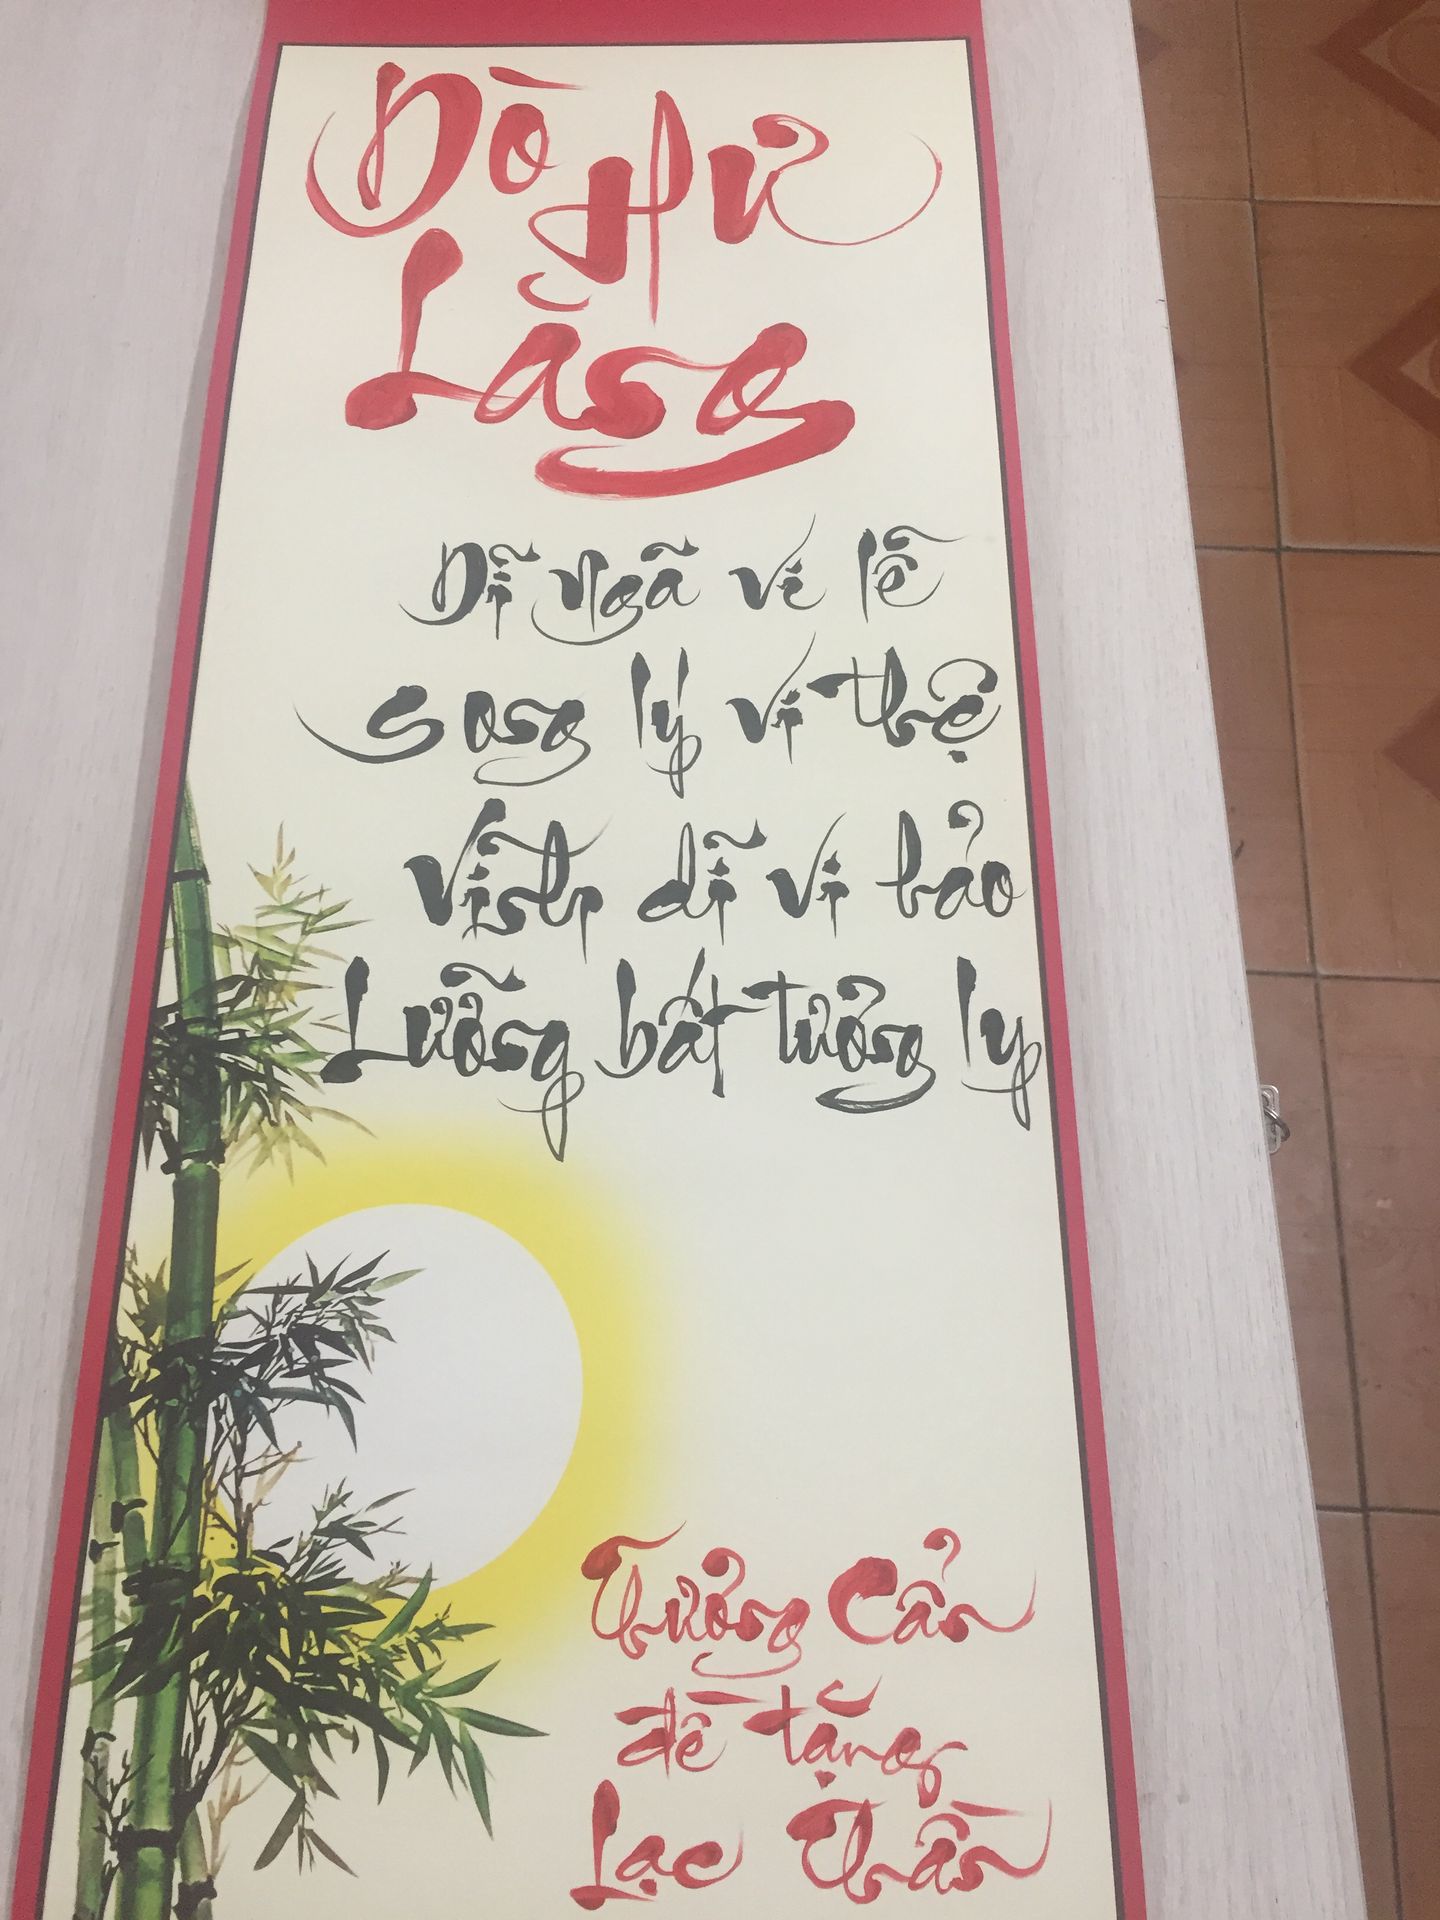 Dò Hư
Lăng
Dĩ ngã vi lễ
song lý vi thệ
Vĩnh dĩ vi bảo
Lưỡng bất tưởng ly
Tưởng Cẩn
đề tặng
Lạc Thần